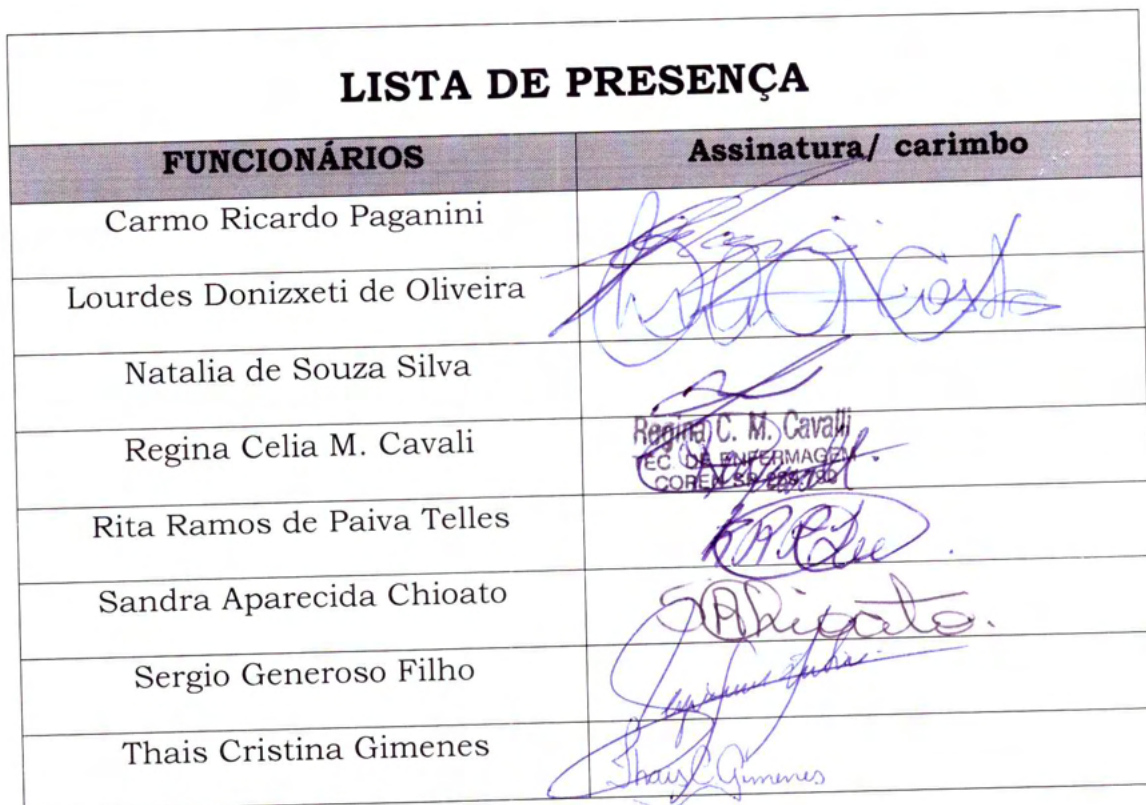 LISTA DE PRESENÇA
FUNCIONÁRIOS Assinatura/ carimbo
Carmo Ricardo Paganini
Lourdes Donizxeti de Oliveira
Natalia de Souza Silva
Regina Celia M. Cavali
Regina C. M. Cavalli
TEC. DE ENFERMAGEM
COREN SP
Rita Ramos de Paiva Telles
Sandra Aparecida Chioato
Sergio Generoso Filho
Thais Cristina Gimenes
Thais C. Gimenes